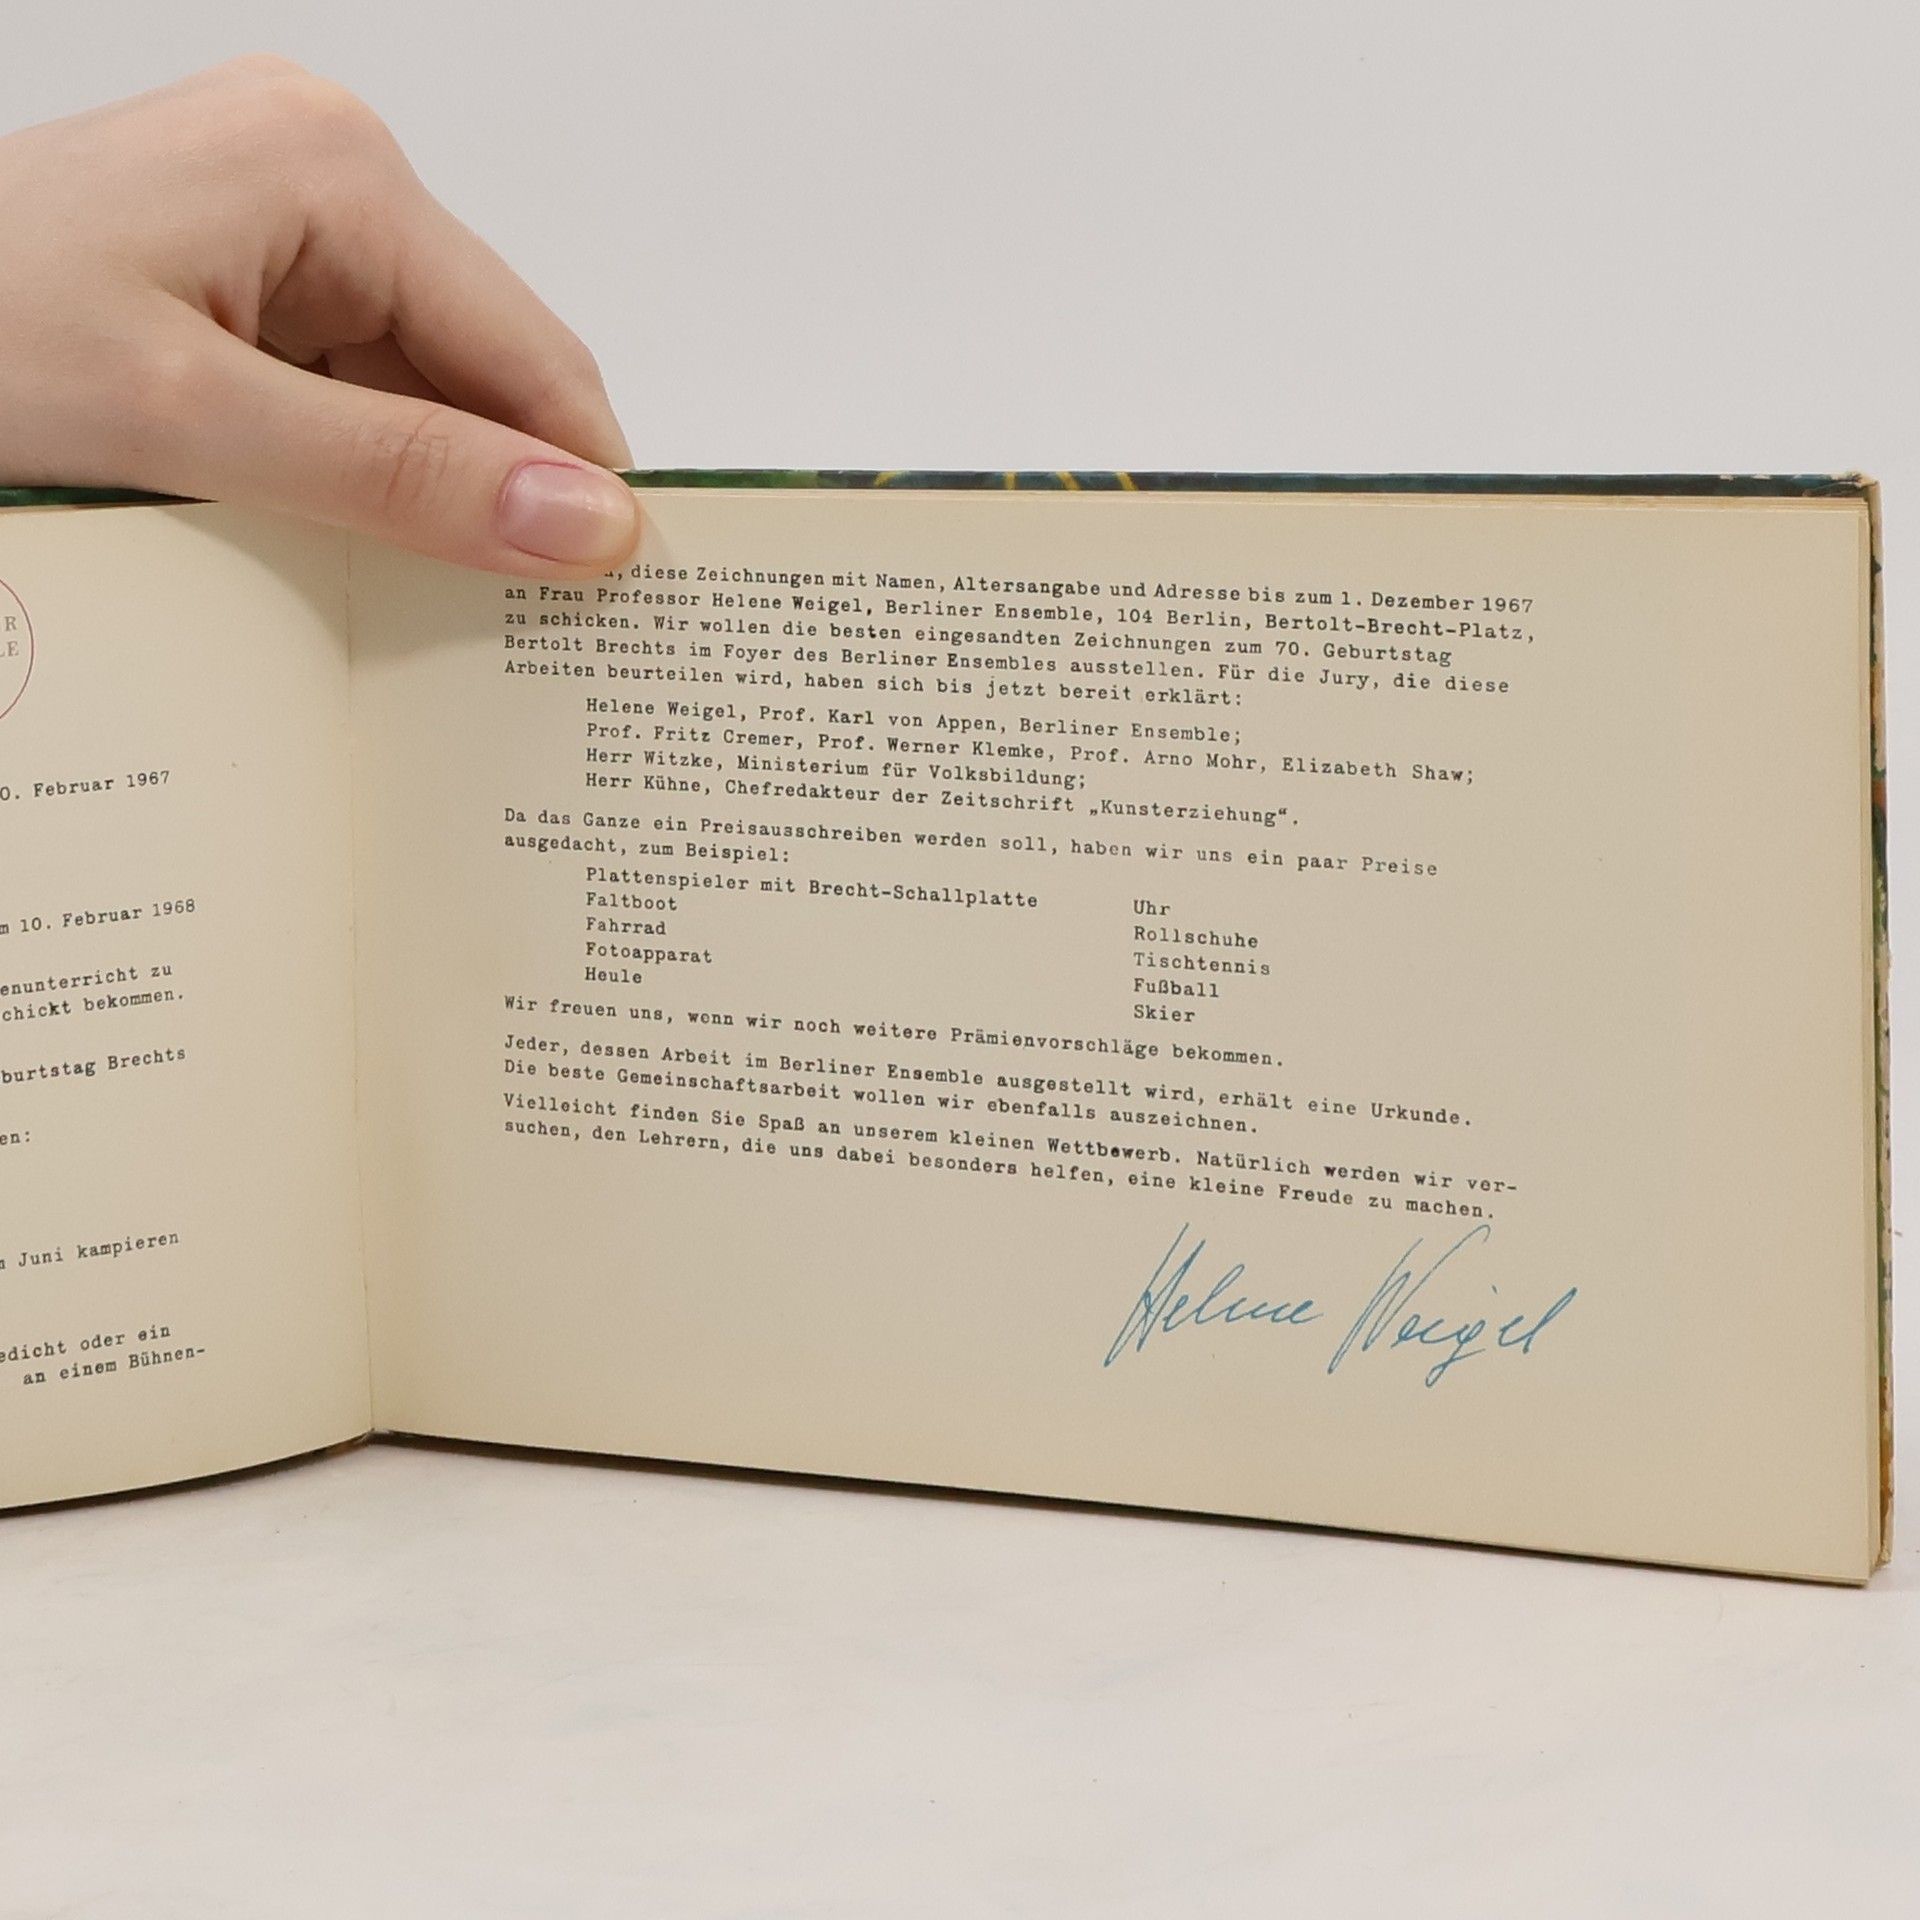 R
LE
0. Februar 1967
m 10. Februar 1968
enunterricht zu
chickt bekommen.
burtstag Brechts
en:
Juni kampieren
edicht oder ein
an einem Bühnen-
diese Zeichnungen mit Namen, Altersangabe und Adresse bis zum 1. Dezember 1967
an Frau Professor Helene Weigel, Berliner Ensemble, 104 Berlin, Bertolt-Brecht-Platz,
zu schicken. Wir wollen die besten eingesandten Zeichnungen zum 70. Geburtstag
Bertolt Brechts im Foyer des Berliner Ensembles ausstellen. Für die Jury, die diese
Arbeiten beurteilen wird, haben sich bis jetzt bereit erklärt:
Helene Weigel, Prof. Karl von Appen, Berliner Ensemble;
Prof. Fritz Cremer, Prof. Werner Klemke, Prof. Arno Mohr, Elizabeth Shaw;
Herr Witzke, Ministerium für Volksbildung;
Herr Kühne, Chefredakteur der Zeitschrift „Kunsterziehung“.
Da das Ganze ein Preisausschreiben werden soll, haben wir uns ein paar Preise
ausgedacht, zum Beispiel:
Plattenspieler mit Brecht-Schallplatte
Faltboot
Fahrrad
Fotoapparat
Heule
Uhr
Rollschuhe
Tischtennis
Fußball
Skier
Wir freuen uns, wenn wir noch weitere Prämienvorschläge bekommen.
Jeder, dessen Arbeit im Berliner Ensemble ausgestellt wird, erhält eine Urkunde.
Die beste Gemeinschaftsarbeit wollen wir ebenfalls auszeichnen.
Vielleicht finden Sie Spaß an unserem kleinen Wettbewerb. Natürlich werden wir ver-
suchen, den Lehrern, die uns dabei besonders helfen, eine kleine Freude zu machen.
Helene Weigel